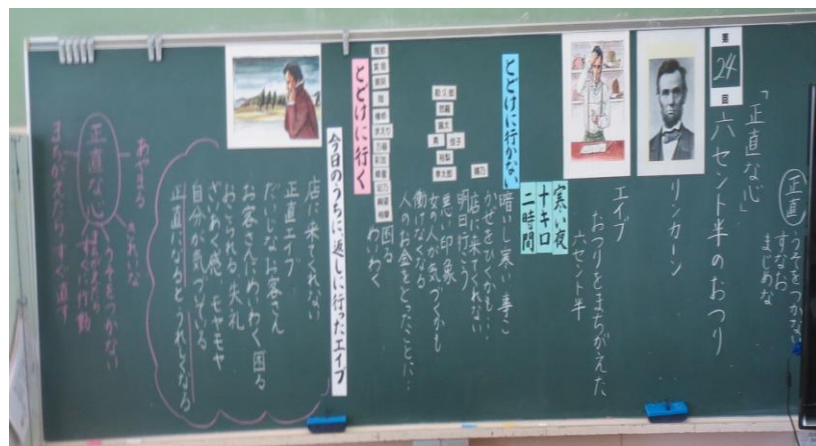 正直
うそをつかない
すなお
まじめな
第24回
「正直な心」
六セント半のおつり
リンカーン
エイブ
おつりをまちがえた
六セント半
寒い夜
十キロ
二時間
とどけに行かない
暗いし寒い事こ
かぜをひくかも…
店に来てくれない
明日行こう
悪い印象
女の人が気づくかも
働けなくなる
人のお金をとったことに…
困る
めいわく
とどけに行く
今日のうちに、返しに行ったエイブ
店に来てくれない
正直エイブ
だいじなお客さん
お客さんにめいわく 困る
おこられる 失礼
ざいあく感 モヤモヤ
自分が気づいている
正直になるとうれしくなる
あやまる
きれいな
うそをつかない
行動
正直な心
まちがえたら すぐ直す